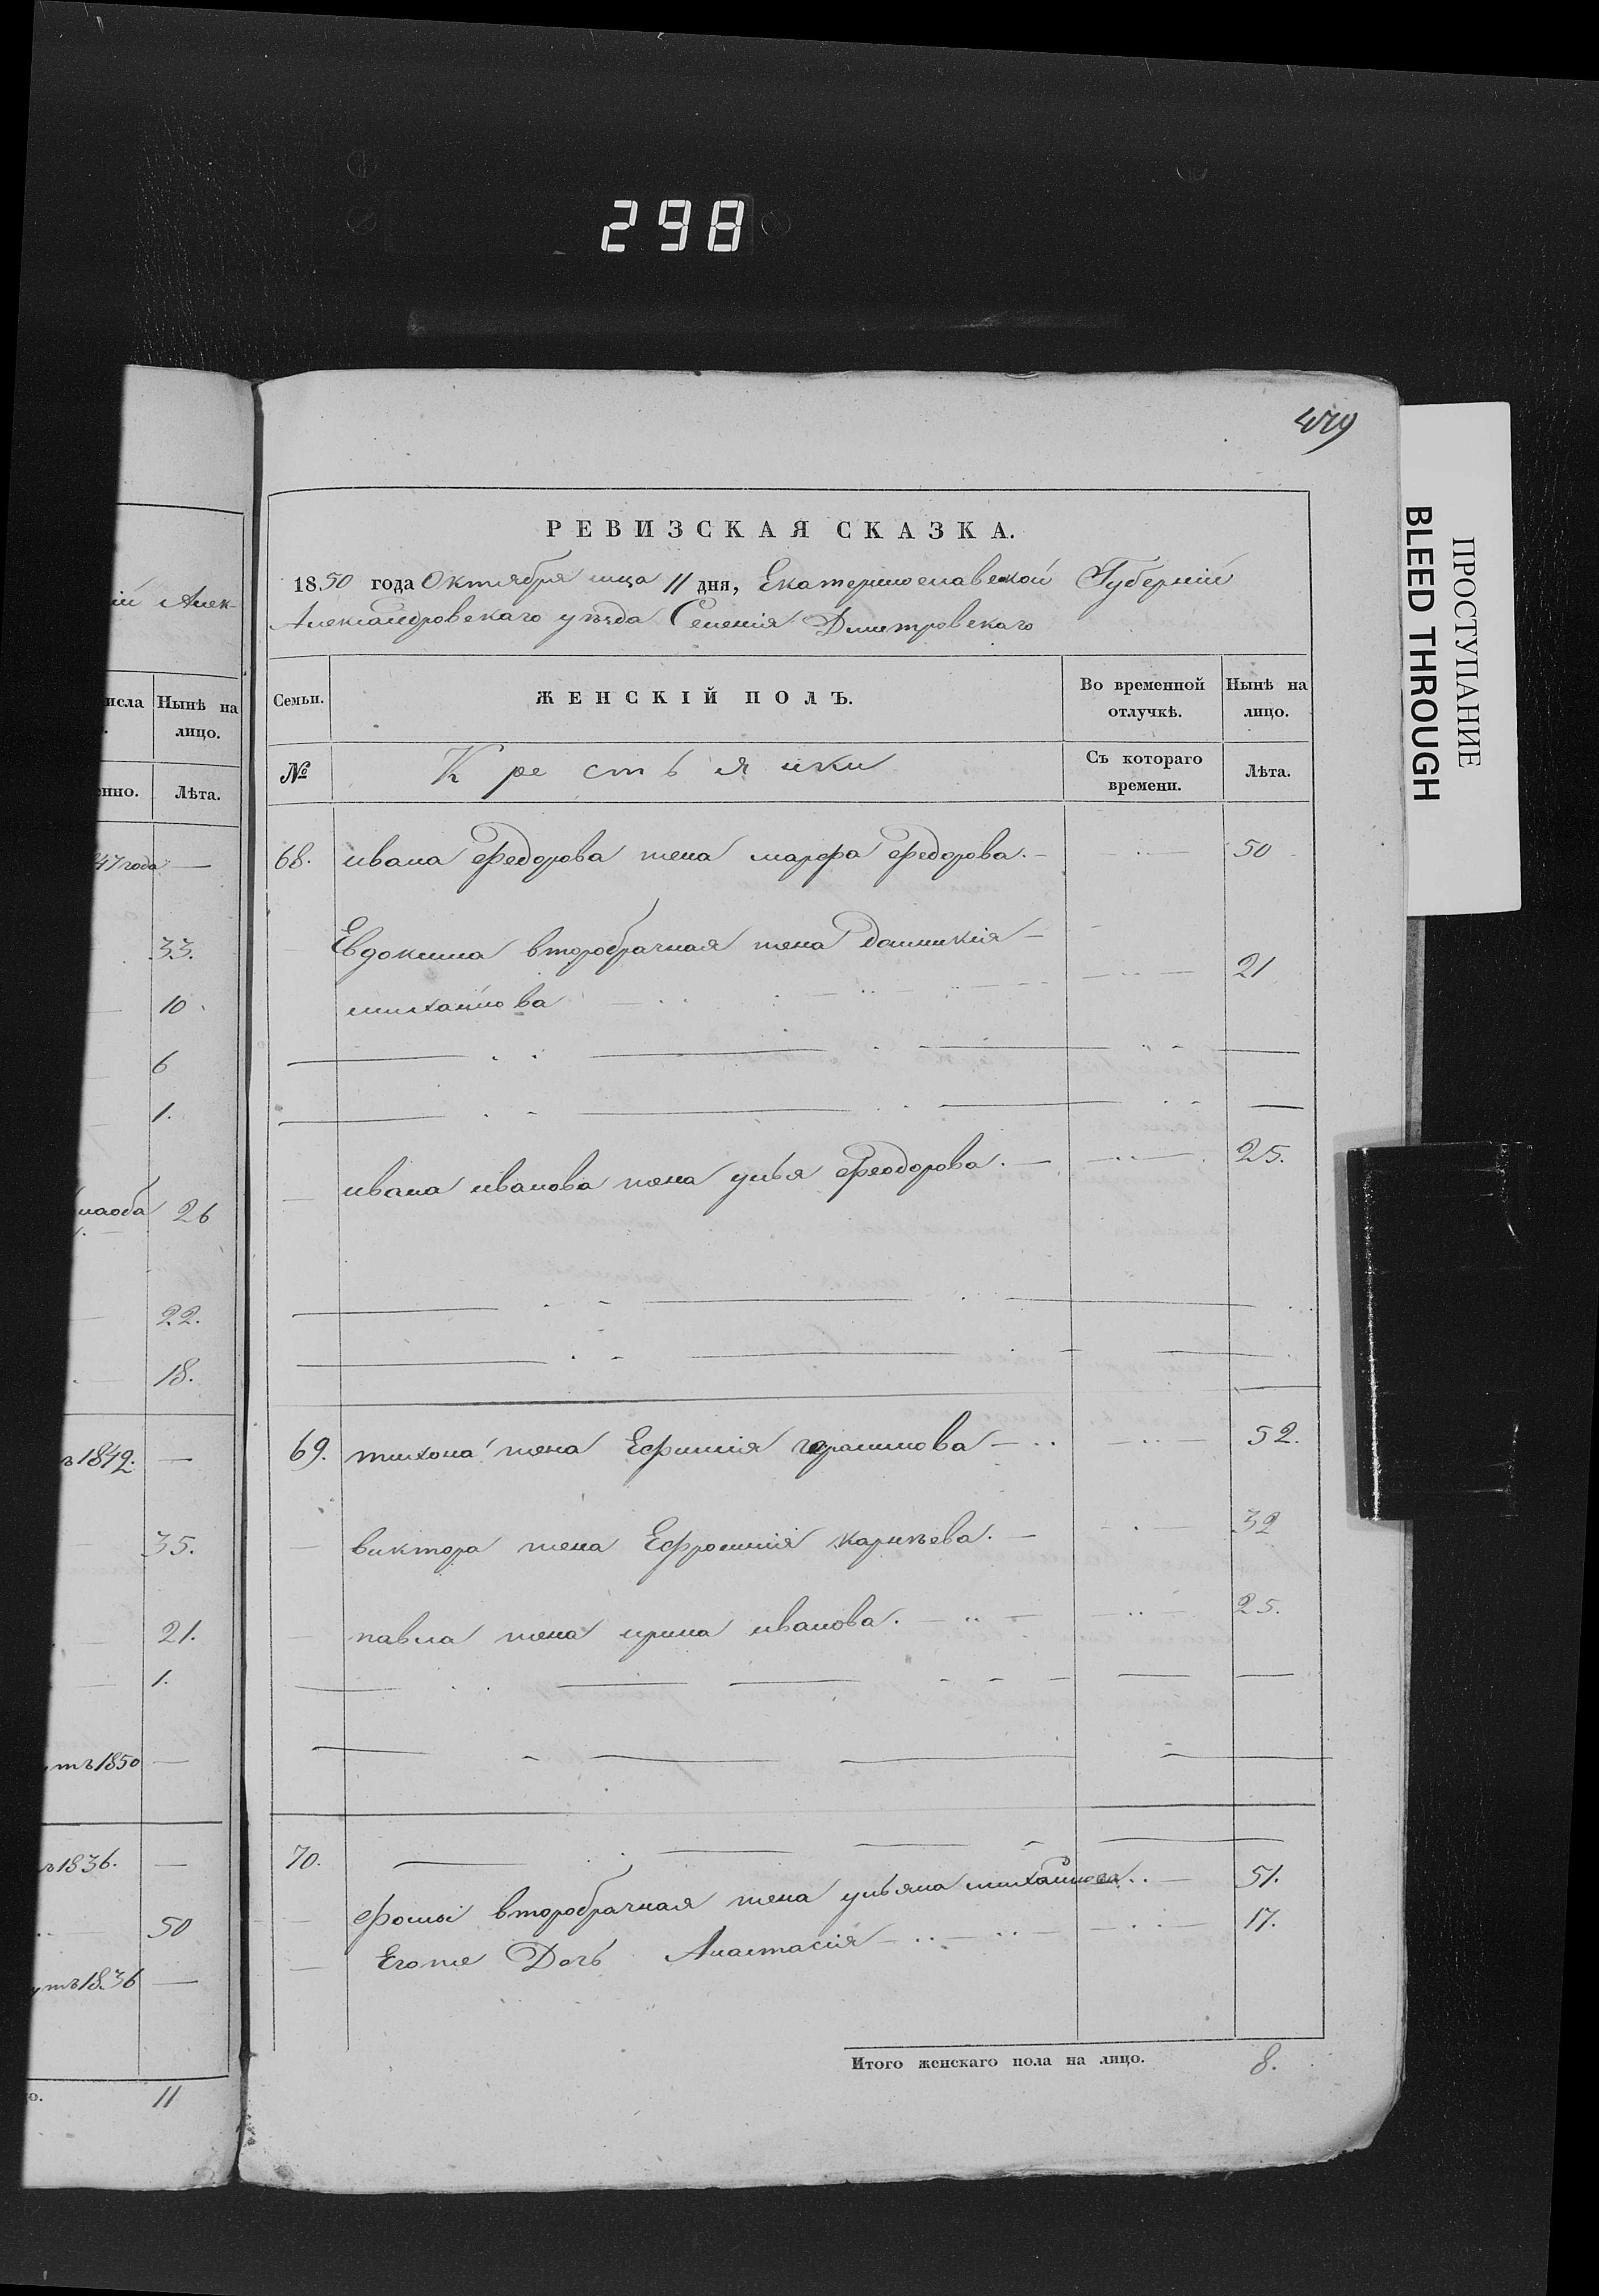 298
479
ПРОСТУПАНИЕ
BLEED THROUGH
РЕВИЗСКАЯ СКАЗКА.
1850 года Октября мца 11 дня, Екатеринославской Губерніи
Александровскаго уѣзда Селенія Дмитровскаго
Семьи. ЖЕНСКІЙ ПОЛЪ. Во временной отлучкѣ. Нынѣ на лицо.
№ Крестьянки Съ котораго времени. Лѣта.
68. ивана Федорова жена марфа Федорова. 50
Евдокима второбрачная жена Домникія
михайлова 21
ивана иванова жена улья Феодорова. 25.
69. тихона жена Ефимія 52.
виктора жена Ефросинія карнѣева. 32
павла жена ирина иванова. 25.
70.
Фомы второбрачная жена ульяна михайлова 51.
Егоже Дочь Анастасія 17.
Итого женскаго пола на лицо. 8.
ій Алек-
исла Нынѣ на
лицо.
енно. Лѣта.
47 года
33.
10
6
1.
26
22.
18.
1842.
35.
21.
1.
тъ 1850
1836.
50
тъ 1836
о. 11